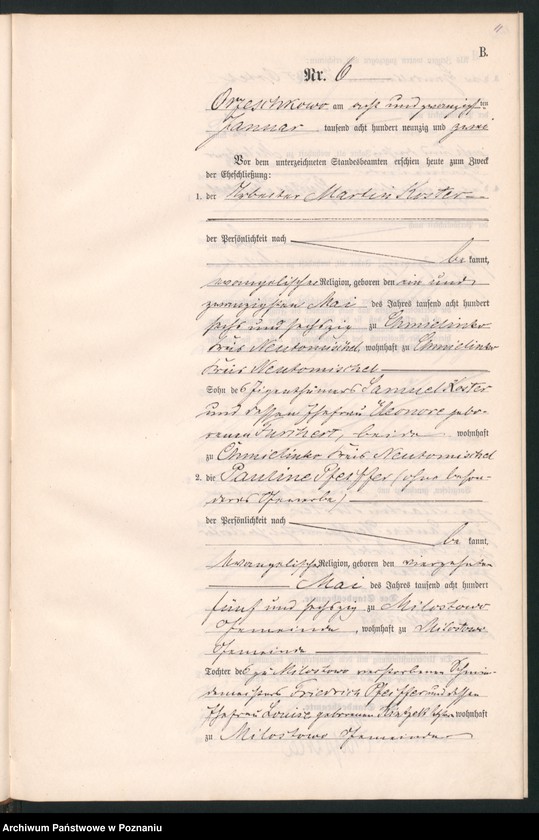 B.
Nr. 6
Orzeschkowo am acht und zwanzigsten
Januar tausend acht hundert neunzig und zwei
Vor dem unterzeichneten Standesbeamten erschien heute zum Zweck
der Eheschließung:
1. der Arbeiter Martin Koster
der Persönlichkeit nach
be kannt,
evangelischer Religion, geboren den ein und
zwanzigsten Mai des Jahres tausend acht hundert
sechs und sechszig zu Chmielinko
Kreis Neutomischel, wohnhaft zu Chmielinko
Kreis Neutomischel
Sohn des Eigenthümers Samuel Koster
und dessen Ehefrau Eleonore gebo-
renen beide wohnhaft
zu Chmielinko Kreis Neutomischel
2. die Pauline Pfeiffer (ohne beson-
deres Gewerbe)
der Persönlichkeit nach
be kannt,
evangelischer Religion, geboren den vierzehnten
Mai des Jahres tausend acht hundert
fünf und sechszig zu Milostowo
Gemeinde, wohnhaft zu Milostowo
Gemeinde
Tochter des zu Milostowo verstorbenen Schmie-
demeisters Friedrich Pfeiffer und dessen
Ehefrau Louise geborenen wohnhaft
zu Milostowo Gemeinde
Archiwum Państwowe w Poznaniu